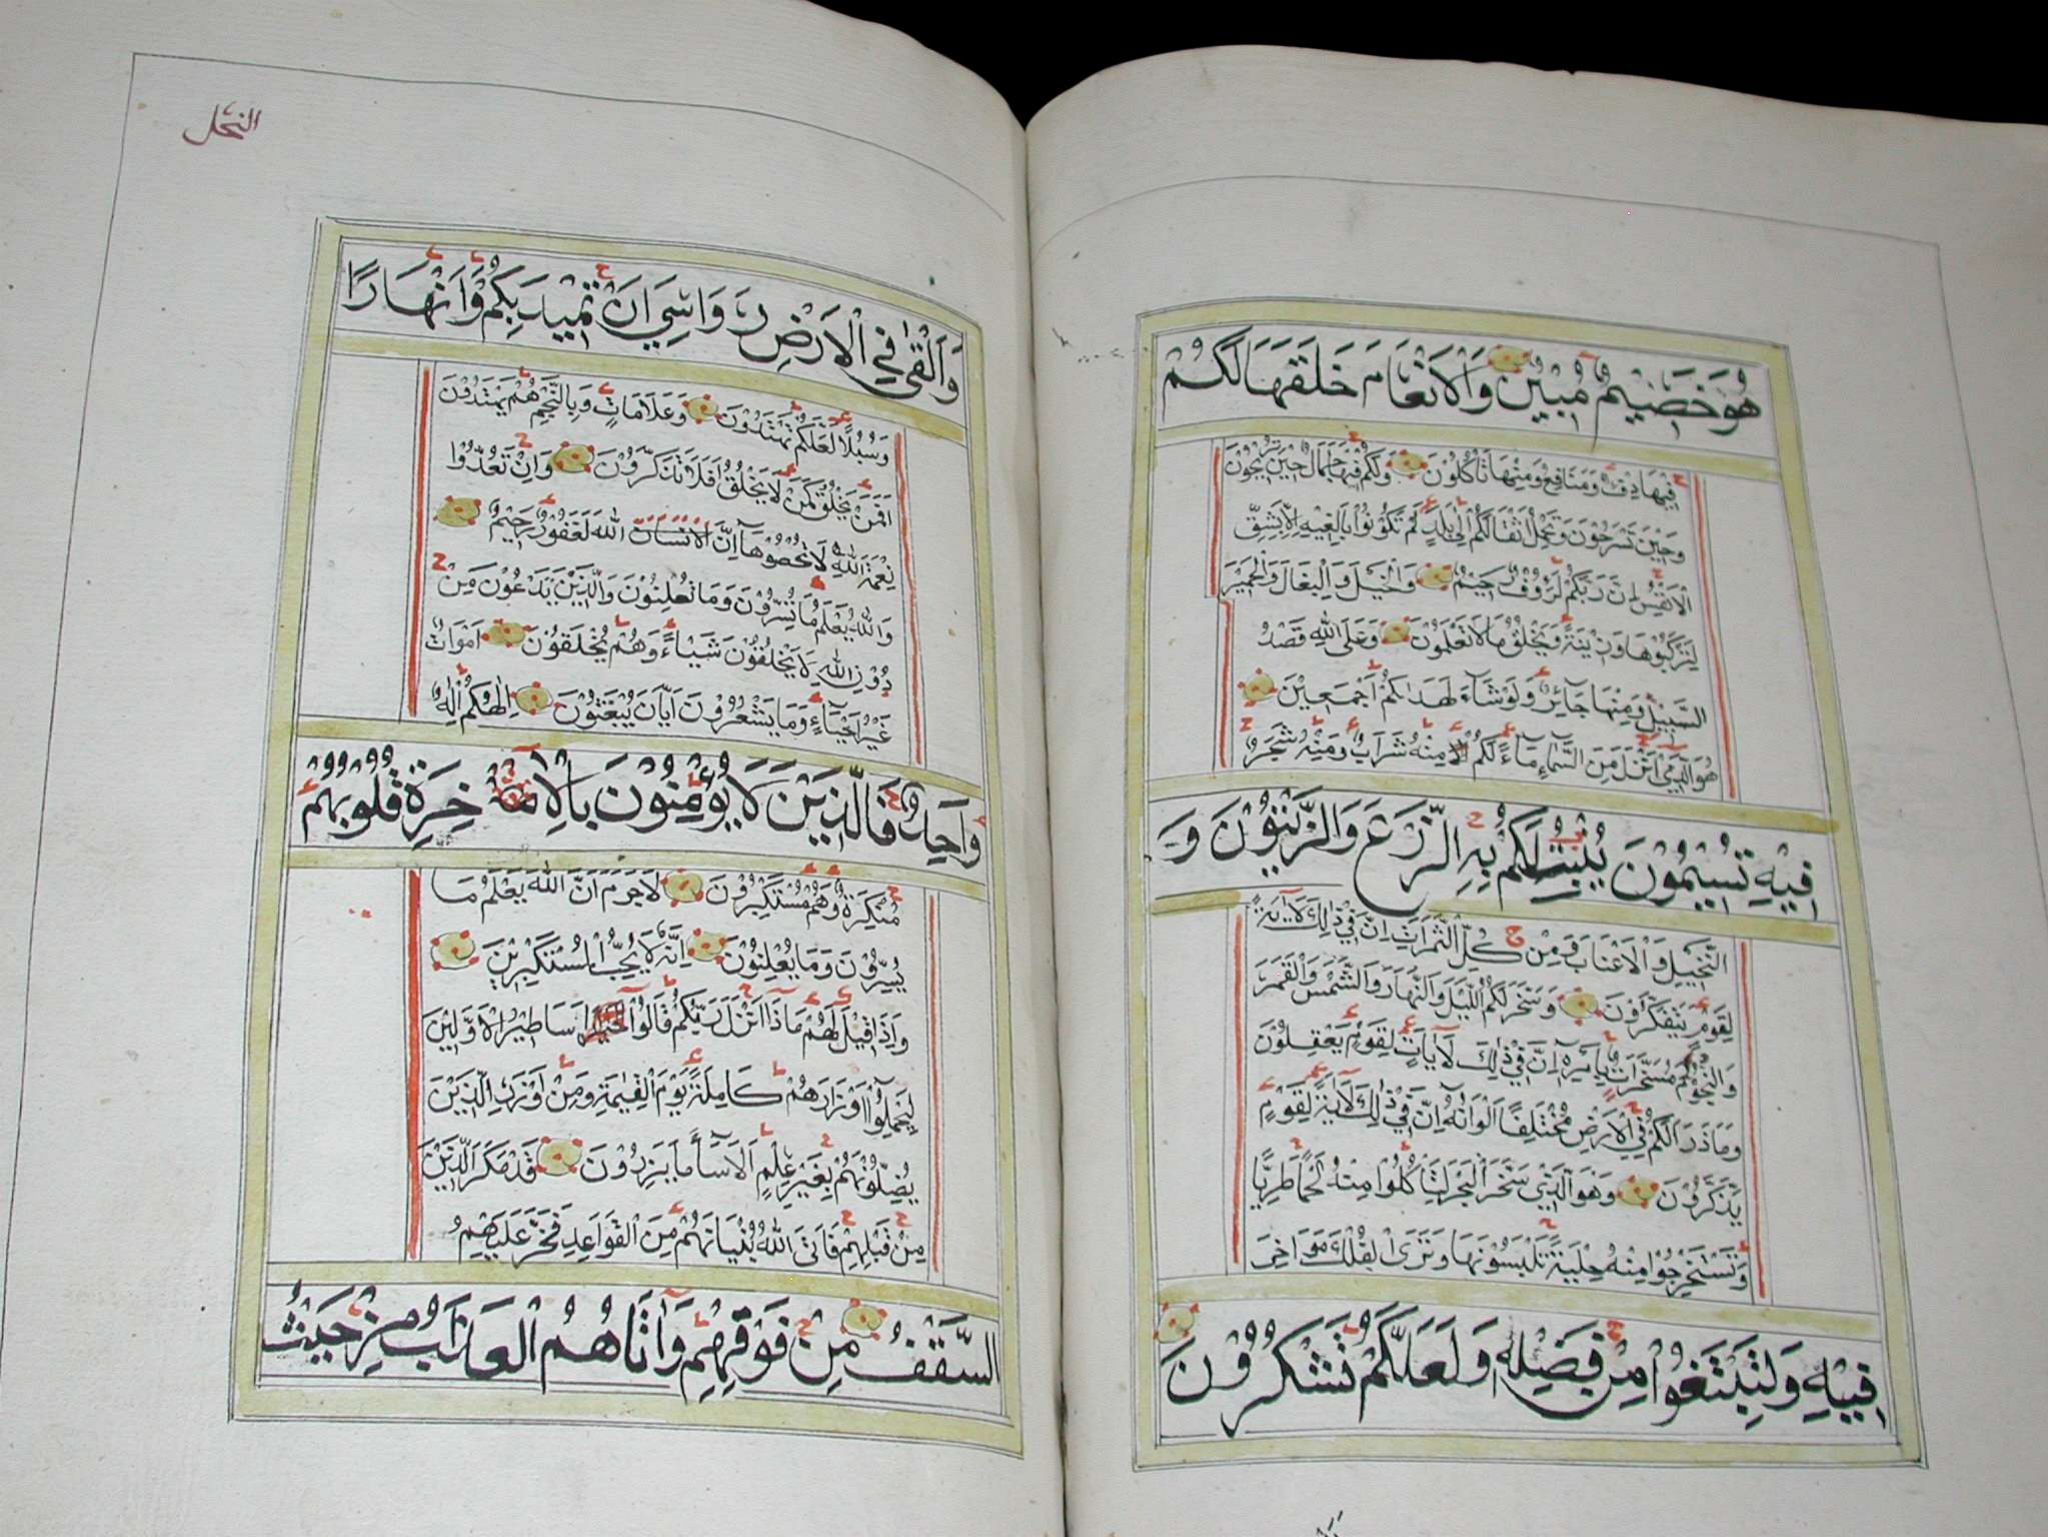 هُوَ خَصِيمٌ مُّبِينٌ وَالْأَنْعَامَ خَلَقَهَا لَكُمْ
فِيهَا دِفْءٌ وَمَنَافِعُ وَمِنْهَا تَأْكُلُونَ وَلَكُمْ فِيهَا جَمَالٌ حِينَ تُرِيحُونَ
وَحِينَ تَسْرَحُونَ وَتَحْمِلُ أَثْقَالَكُمْ إِلَىٰ بَلَدٍ لَمْ تَكُونُوا بَالِغِيهِ إِلَّا بِشِقِّ
الْأَنْفُسِ إِنَّ رَبَّكُمْ لَرَؤُوفٌ رَحِيمٌ وَالْخَيْلَ وَالْبِغَالَ وَالْحَمِيرَ
لِتَرْكَبُوهَا وَزِينَةً وَيَخْلُقُ مَا لَا تَعْلَمُونَ وَعَلَى اللَّهِ قَصْدُ
السَّبِيلِ وَمِنْهَا جَائِرٌ وَلَوْ شَاءَ لَهَدَاكُمْ أَجْمَعِينَ
هُوَ الَّذِي أَنْزَلَ مِنَ السَّمَاءِ مَاءً لَكُمْ مِنْهُ شَرَابٌ وَمِنْهُ شَجَرٌ
فِيهِ تُسِيمُونَ يُنْبِتُ لَكُمْ بِهِ الزَّرْعَ وَالزَّيْتُونَ وَ
النَّخِيلَ وَالْأَعْنَابَ وَمِنْ كُلِّ الثَّمَرَاتِ إِنَّ فِي ذَٰلِكَ لَآيَةً
لِقَوْمٍ يَتَفَكَّرُونَ وَسَخَّرَ لَكُمُ اللَّيْلَ وَالنَّهَارَ وَالشَّمْسَ وَالْقَمَرَ
وَالنُّجُومُ مُسَخَّرَاتٌ بِأَمْرِهِ إِنَّ فِي ذَٰلِكَ لَآيَاتٍ لِقَوْمٍ يَعْقِلُونَ
وَمَا ذَرَأَ لَكُمْ فِي الْأَرْضِ مُخْتَلِفًا أَلْوَانُهُ إِنَّ فِي ذَٰلِكَ لَآيَةً لِقَوْمٍ
يَذَّكَّرُونَ وَهُوَ الَّذِي سَخَّرَ الْبَحْرَ لِتَأْكُلُوا مِنْهُ لَحْمًا طَرِيًّا
وَتَسْتَخْرِجُوا مِنْهُ حِلْيَةً تَلْبَسُونَهَا وَتَرَى الْفُلْكَ مَوَاخِرَ
فِيهِ وَلِتَبْتَغُوا مِنْ فَضْلِهِ وَلَعَلَّكُمْ تَشْكُرُونَ
النحل
وَأَلْقَىٰ فِي الْأَرْضِ رَوَاسِيَ أَنْ تَمِيدَ بِكُمْ وَأَنْهَارًا
وَسُبُلًا لَعَلَّكُمْ تَهْتَدُونَ وَعَلَامَاتٍ وَبِالنَّجْمِ هُمْ يَهْتَدُونَ
أَفَمَنْ يَخْلُقُ كَمَنْ لَا يَخْلُقُ أَفَلَا تَذَكَّرُونَ وَإِنْ تَعُدُّوا
نِعْمَةَ اللَّهِ لَا تُحْصُوهَا إِنَّ الْإِنْسَانَ اللَّهَ لَغَفُورٌ رَحِيمٌ
وَاللَّهُ يَعْلَمُ مَا تُسِرُّونَ وَمَا تُعْلِنُونَ وَالَّذِينَ يَدْعُونَ مِنْ
دُونِ اللَّهِ لَا يَخْلُقُونَ شَيْئًا وَهُمْ يُخْلَقُونَ أَمْوَاتٌ
غَيْرُ أَحْيَاءٍ وَمَا يَشْعُرُونَ أَيَّانَ يُبْعَثُونَ إِلَٰهُكُمْ إِلَٰهٌ
وَاحِدٌ فَالَّذِينَ لَا يُؤْمِنُونَ بِالْآخِرَةِ قُلُوبُهُمْ
مُنْكِرَةٌ وَهُمْ مُسْتَكْبِرُونَ لَا جَرَمَ أَنَّ اللَّهَ يَعْلَمُ مَا
يُسِرُّونَ وَمَا يُعْلِنُونَ إِنَّهُ لَا يُحِبُّ الْمُسْتَكْبِرِينَ
وَإِذَا قِيلَ لَهُمْ مَاذَا أَنْزَلَ رَبُّكُمْ قَالُوا أَسَاطِيرُ الْأَوَّلِينَ
لِيَحْمِلُوا أَوْزَارَهُمْ كَامِلَةً يَوْمَ الْقِيَٰمَةِ وَمِنْ أَوْزَارِ الَّذِينَ
يُضِلُّونَهُمْ بِغَيْرِ عِلْمٍ أَلَا سَاءَ مَا يَزِرُونَ قَدْ مَكَرَ الَّذِينَ
مِنْ قَبْلِهِمْ فَأَتَى اللَّهُ بُنْيَانَهُمْ مِنَ الْقَوَاعِدِ فَخَرَّ عَلَيْهِمُ
السَّقْفُ مِنْ فَوْقِهِمْ وَأَتَاهُمُ الْعَذَابُ مِنْ حَيْثُ